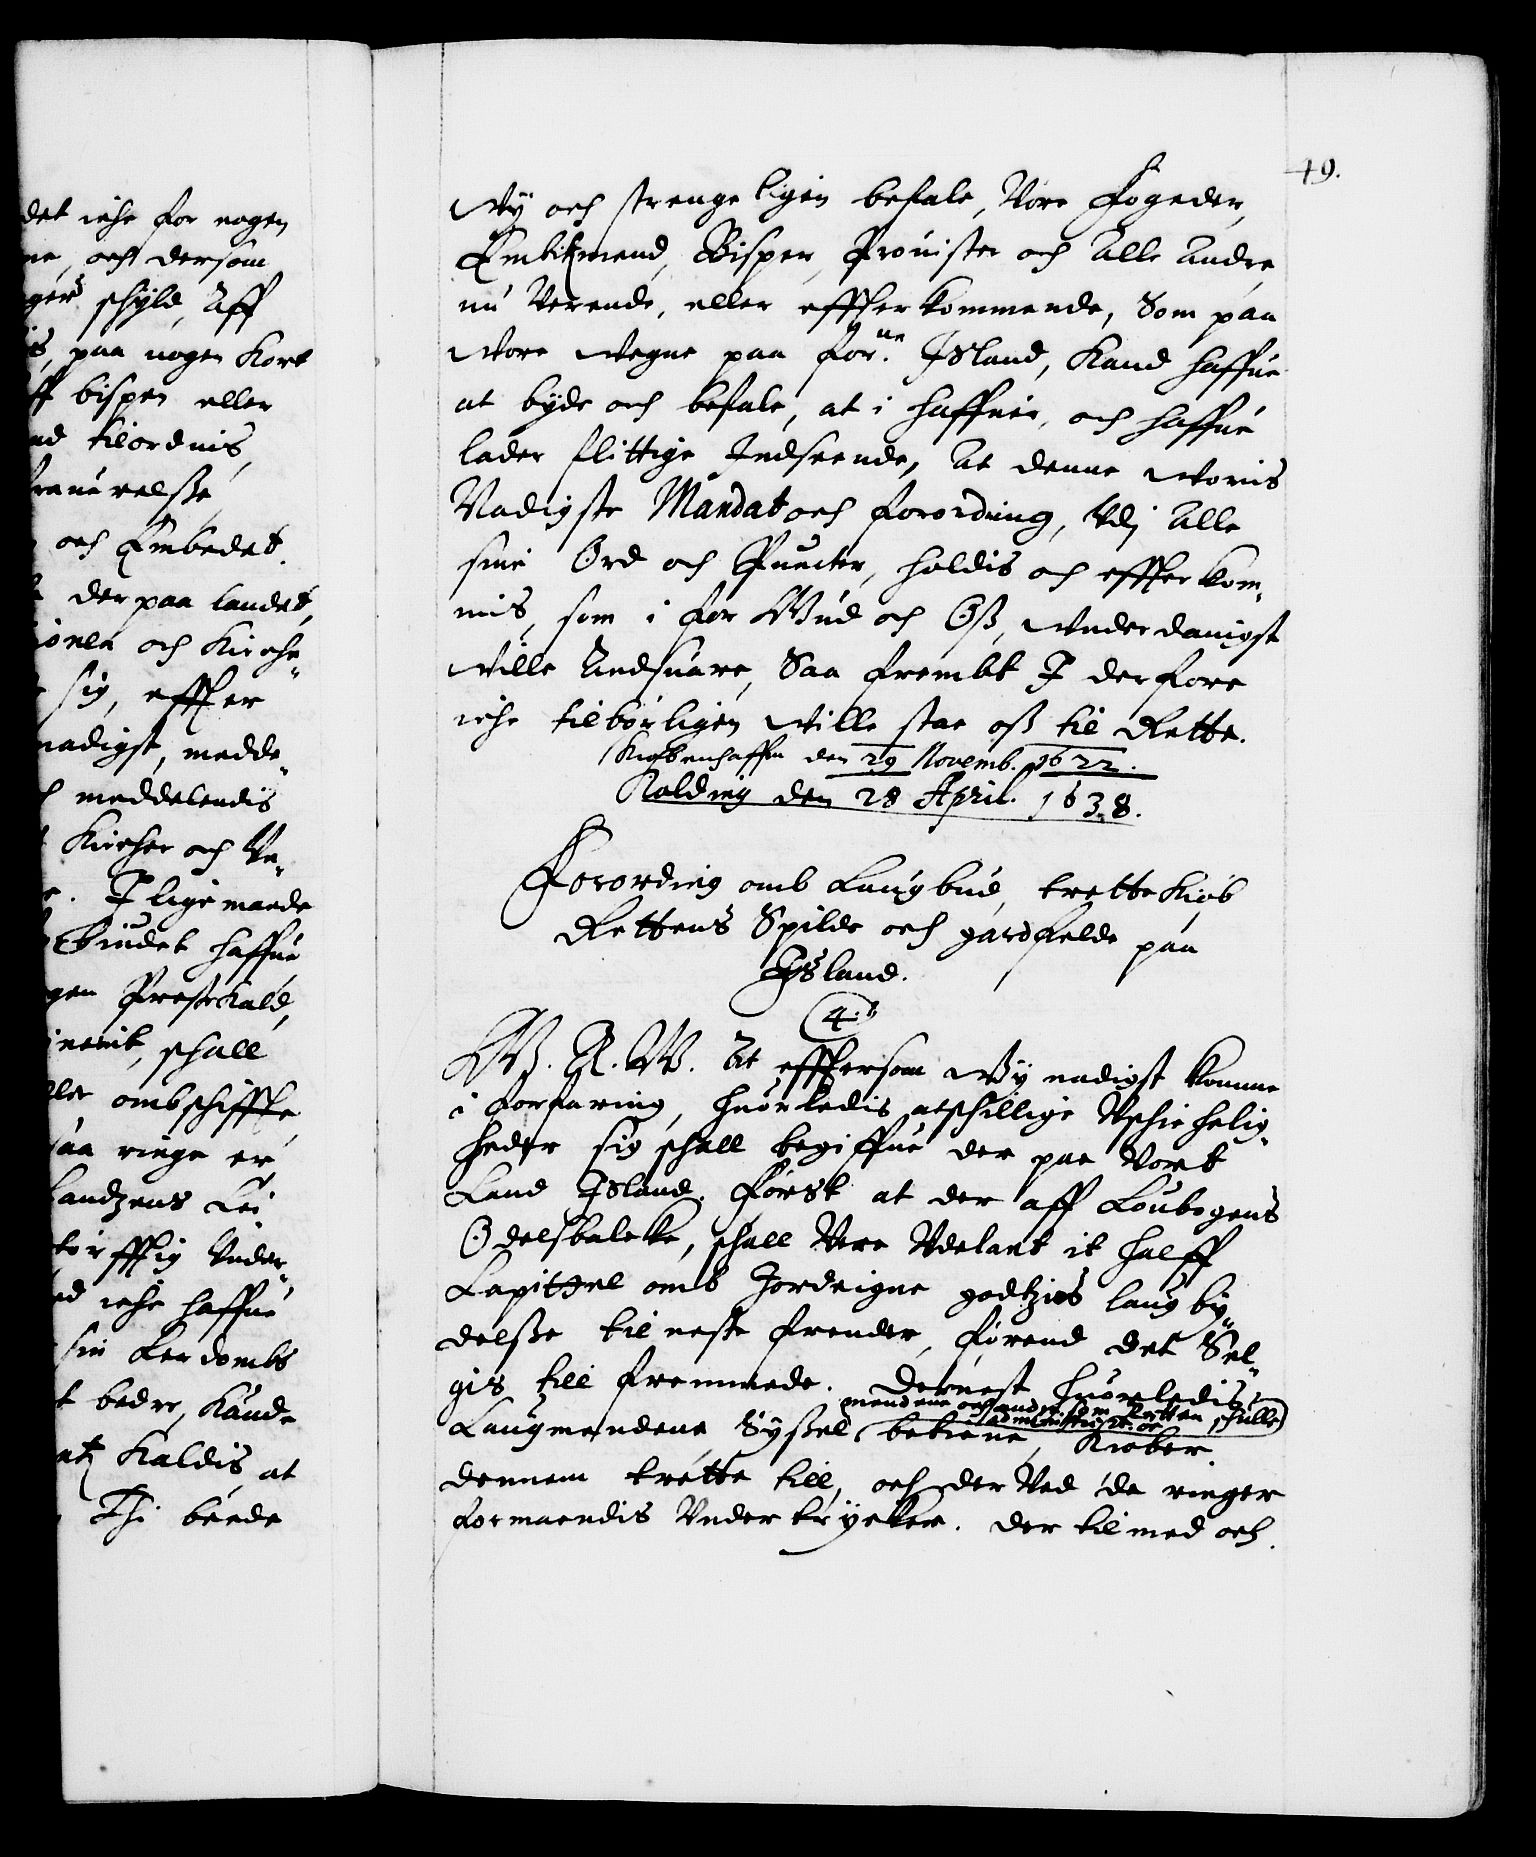 det iche for nogen
ne, och dersom
gers schyld, Aff
is, paa nogen Kort
ff bispen eller
nd tilordnis,
och Embedet.
der paa landet,
och Kirche„
sig, effter
nadigst, medde„
meddelendis
Kircher och Ve„
I lige maade
Bundet haffue
gen Prestekald,
schall
ombschiffte
saa ringe er
Landzens Lei„
Vnder„
ed iche haffue
sin Lerdombs
t bedre, Kande
Kaldis, at
Thi beede
49.
Wy och strengeligen befale, Vore Fogeder,
Embitzmend, Bisper, Prouister och Alle Andre
nu Verende, eller effterkommende, Som paa
Wore Wegne paa forne. Jsland, Kand haffue
at byde och befale, at i haffuer, och haffue
lader flittige Indseende, At denne Woris
Nadigste Mandat och forordning, Vdj Alle
sine Ord och Puncter, holdis och effterkom„
mis, som i for Gud och Oß, Wnderdanigst
Wille Andsuare, Saa frembt I derfore
iche tilbørligen Wille staa oß til Rette.
Kiøbenhaffn den 29 Novemb. 1622.
Kolding den 28 April. 1638.
Forording omb Laugbud, trettekiøb
Rettens Spilde och gardfelde paa
Jsland.
4.
W. A. W. At efftersom Wy nadigst komme
i forfaring, huorledis atschillige Vschichelig„
heder sig schall begiffue der paa Vort
Land Jsland. Først at der aff Loubogens
Odelsbalcke, schall Vere Vdelatt it halff
Capittel omb Jordeigne godtzis laug by„
delße til neste frender, førend det Sel„
gis till fremmede. Dernest huorledis
mendene och andre som Retten schulle
administrere oc
Laugmendene Sysßel betiene, Kiøber
dennem trette till, och der Ved de ringer
formuendis Vndertrycker. Der til med och